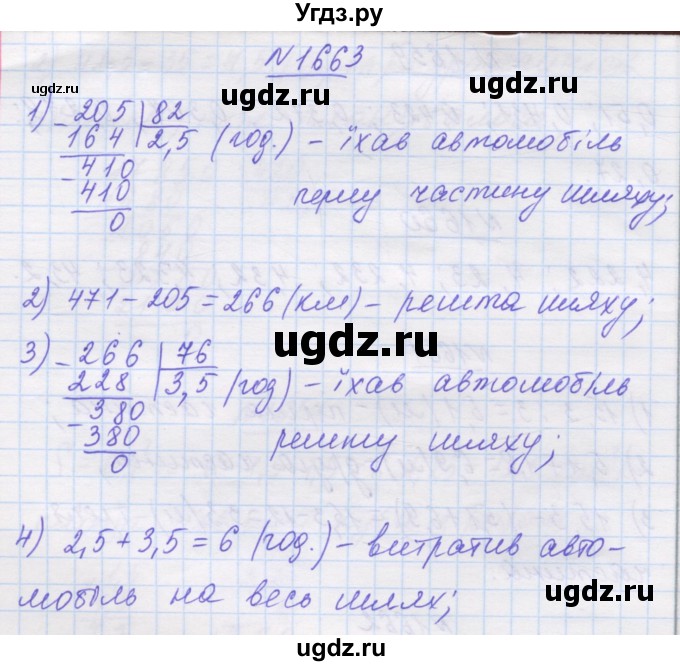 Угдз.ру
N 1663
1) - 205 | 82
164 | 2,5 (год.) - їхав автомобіль
- 410 першу частину шляху;
410
0
2) 471 - 205 = 266 (км) - решта шляху;
3) - 266 | 76
228 | 3,5 (год) - їхав автомобіль
- 380
380 решту шляху;
0
4) 2,5 + 3,5 = 6 (год.) - витратив авто-
мобіль на весь шлях;
ugdz.ru
ugdz.ru
ugdz.ru
ugdz.ru
ugdz.ru
ugdz.ru
ugdz.ru
ugdz.ru
ugdz.ru
ugdz.ru